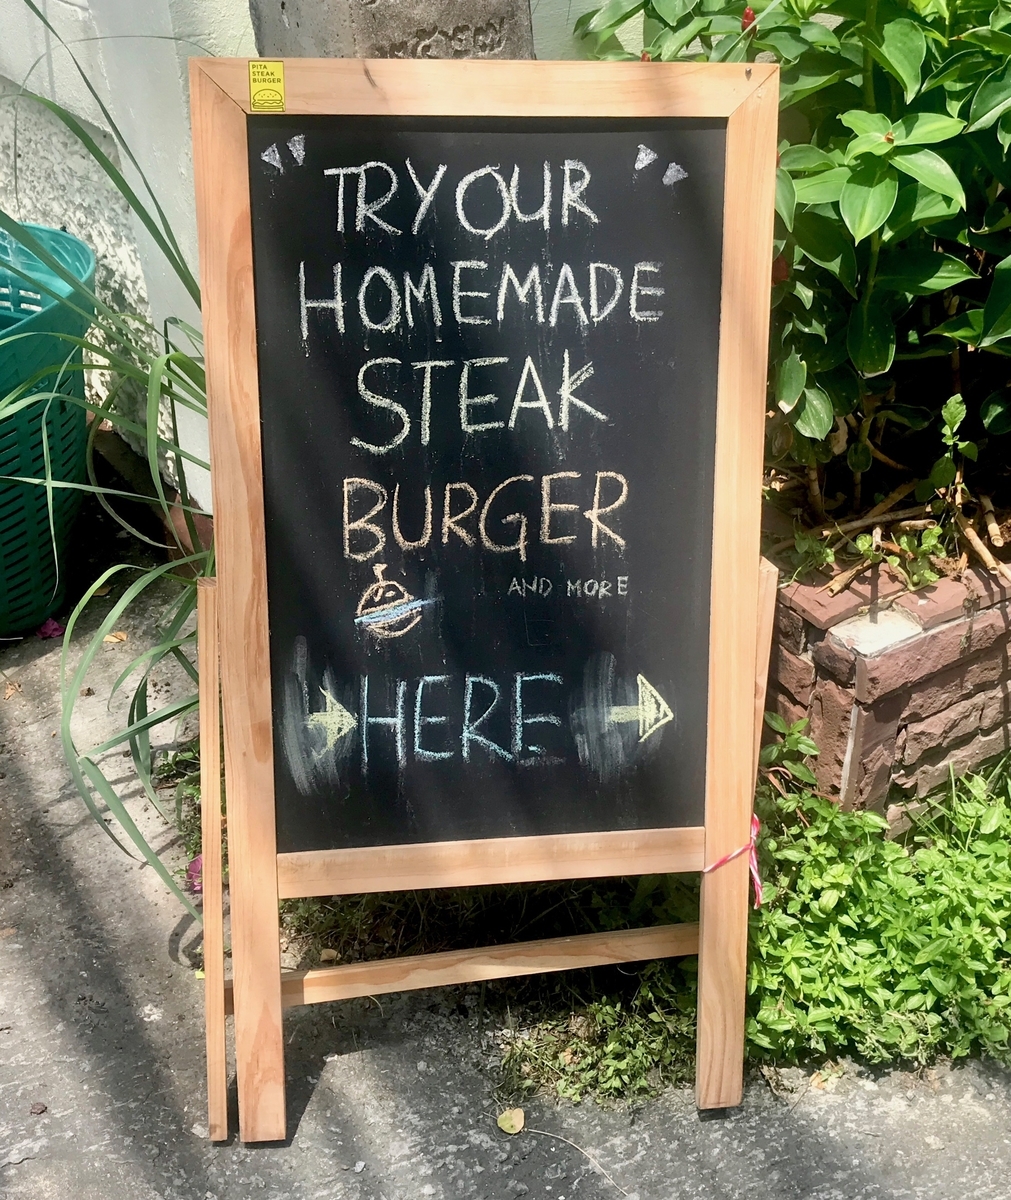 PITA
STEAK
BURGER
"TRY OUR"
HOMEMADE
STEAK
BURGER
AND MORE
HERE